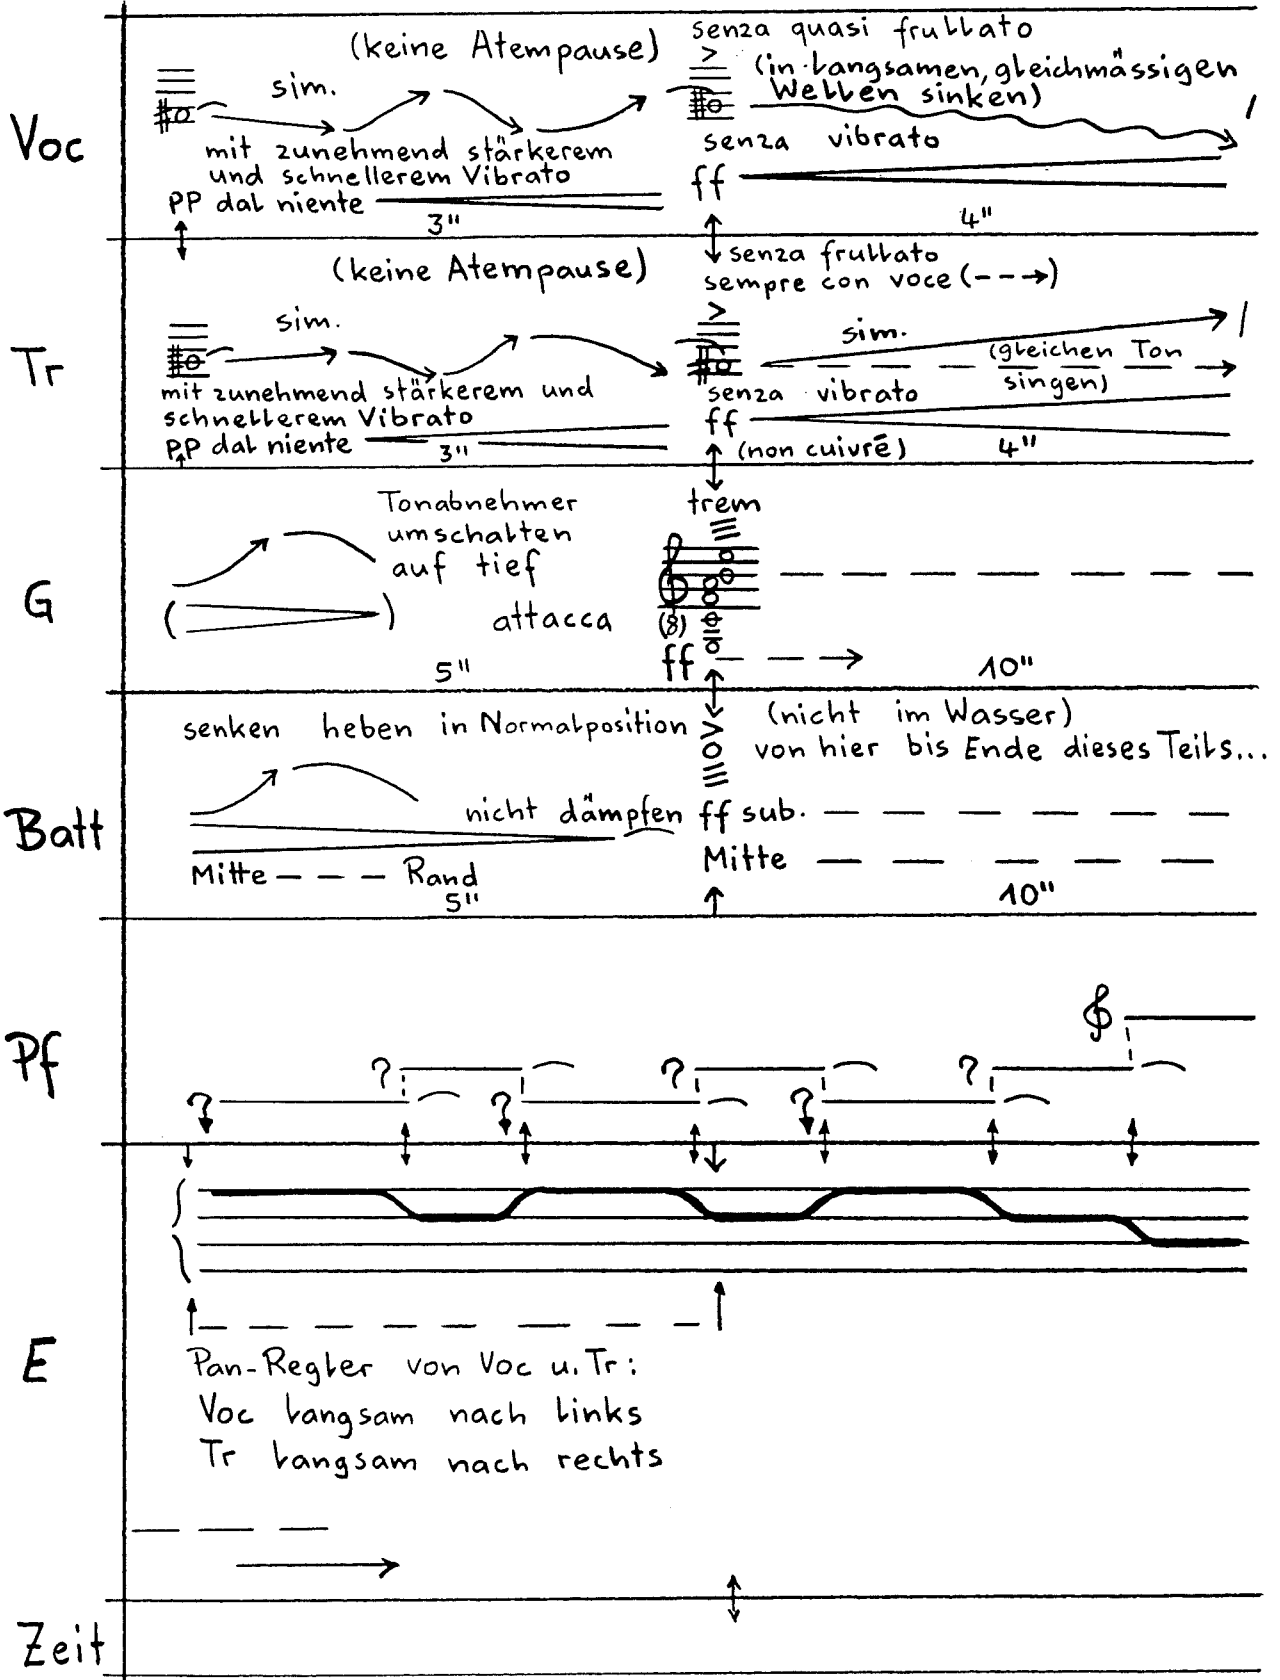 Voc
(keine Atempause)
sim.
mit zunehmend stärkerem
und schnellerem Vibrato
pp dal niente
3"
senza quasi frullato
(in langsamen, gleichmässigen
Wellen sinken)
senza vibrato
ff
4"
Tr
(keine Atempause)
sim.
mit zunehmend stärkerem und
schnellerem Vibrato
pp dal niente
3"
senza frullato
sempre con voce (---→)
sim.
(gleichen Ton
singen)
senza vibrato
ff
(non cuivré)
4"
G
Tonabnehmer
umschalten
auf tief
attacca
5"
trem
(8)
ff
10"
Batt
senken heben in Normalposition
nicht dämpfen
Mitte --- Rand
5"
(nicht im Wasser)
von hier bis Ende dieses Teils...
ff sub.
Mitte
10"
Pf
E
Pan-Regler von Voc u. Tr:
Voc langsam nach links
Tr langsam nach rechts
Zeit